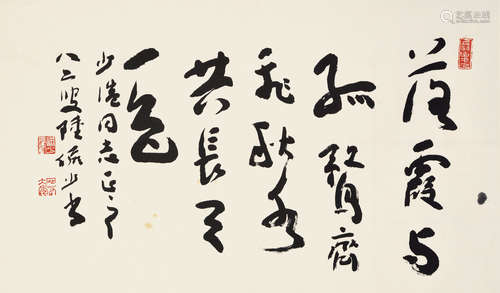 落霞与
孤鹜齐
飞秋水
共长天
一色
少滢同志正之
八二叟陆俨少书